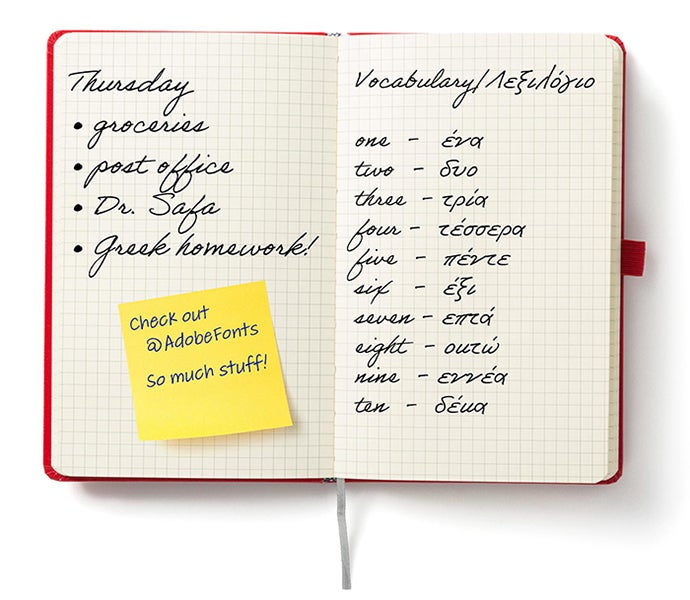 Thursday
• groceries
• post office
• Dr. Safa
• Greek homework!
Check out
@AdobeFonts
So much stuff!
Vocabulary/Λεξιλόγιο
one - ένα
two - δυο
three - τρία
four - τέσσερα
five - πέντε
six - έξι
seven - επτά
eight - οκτώ
nine - εννέα
ten - δέκα